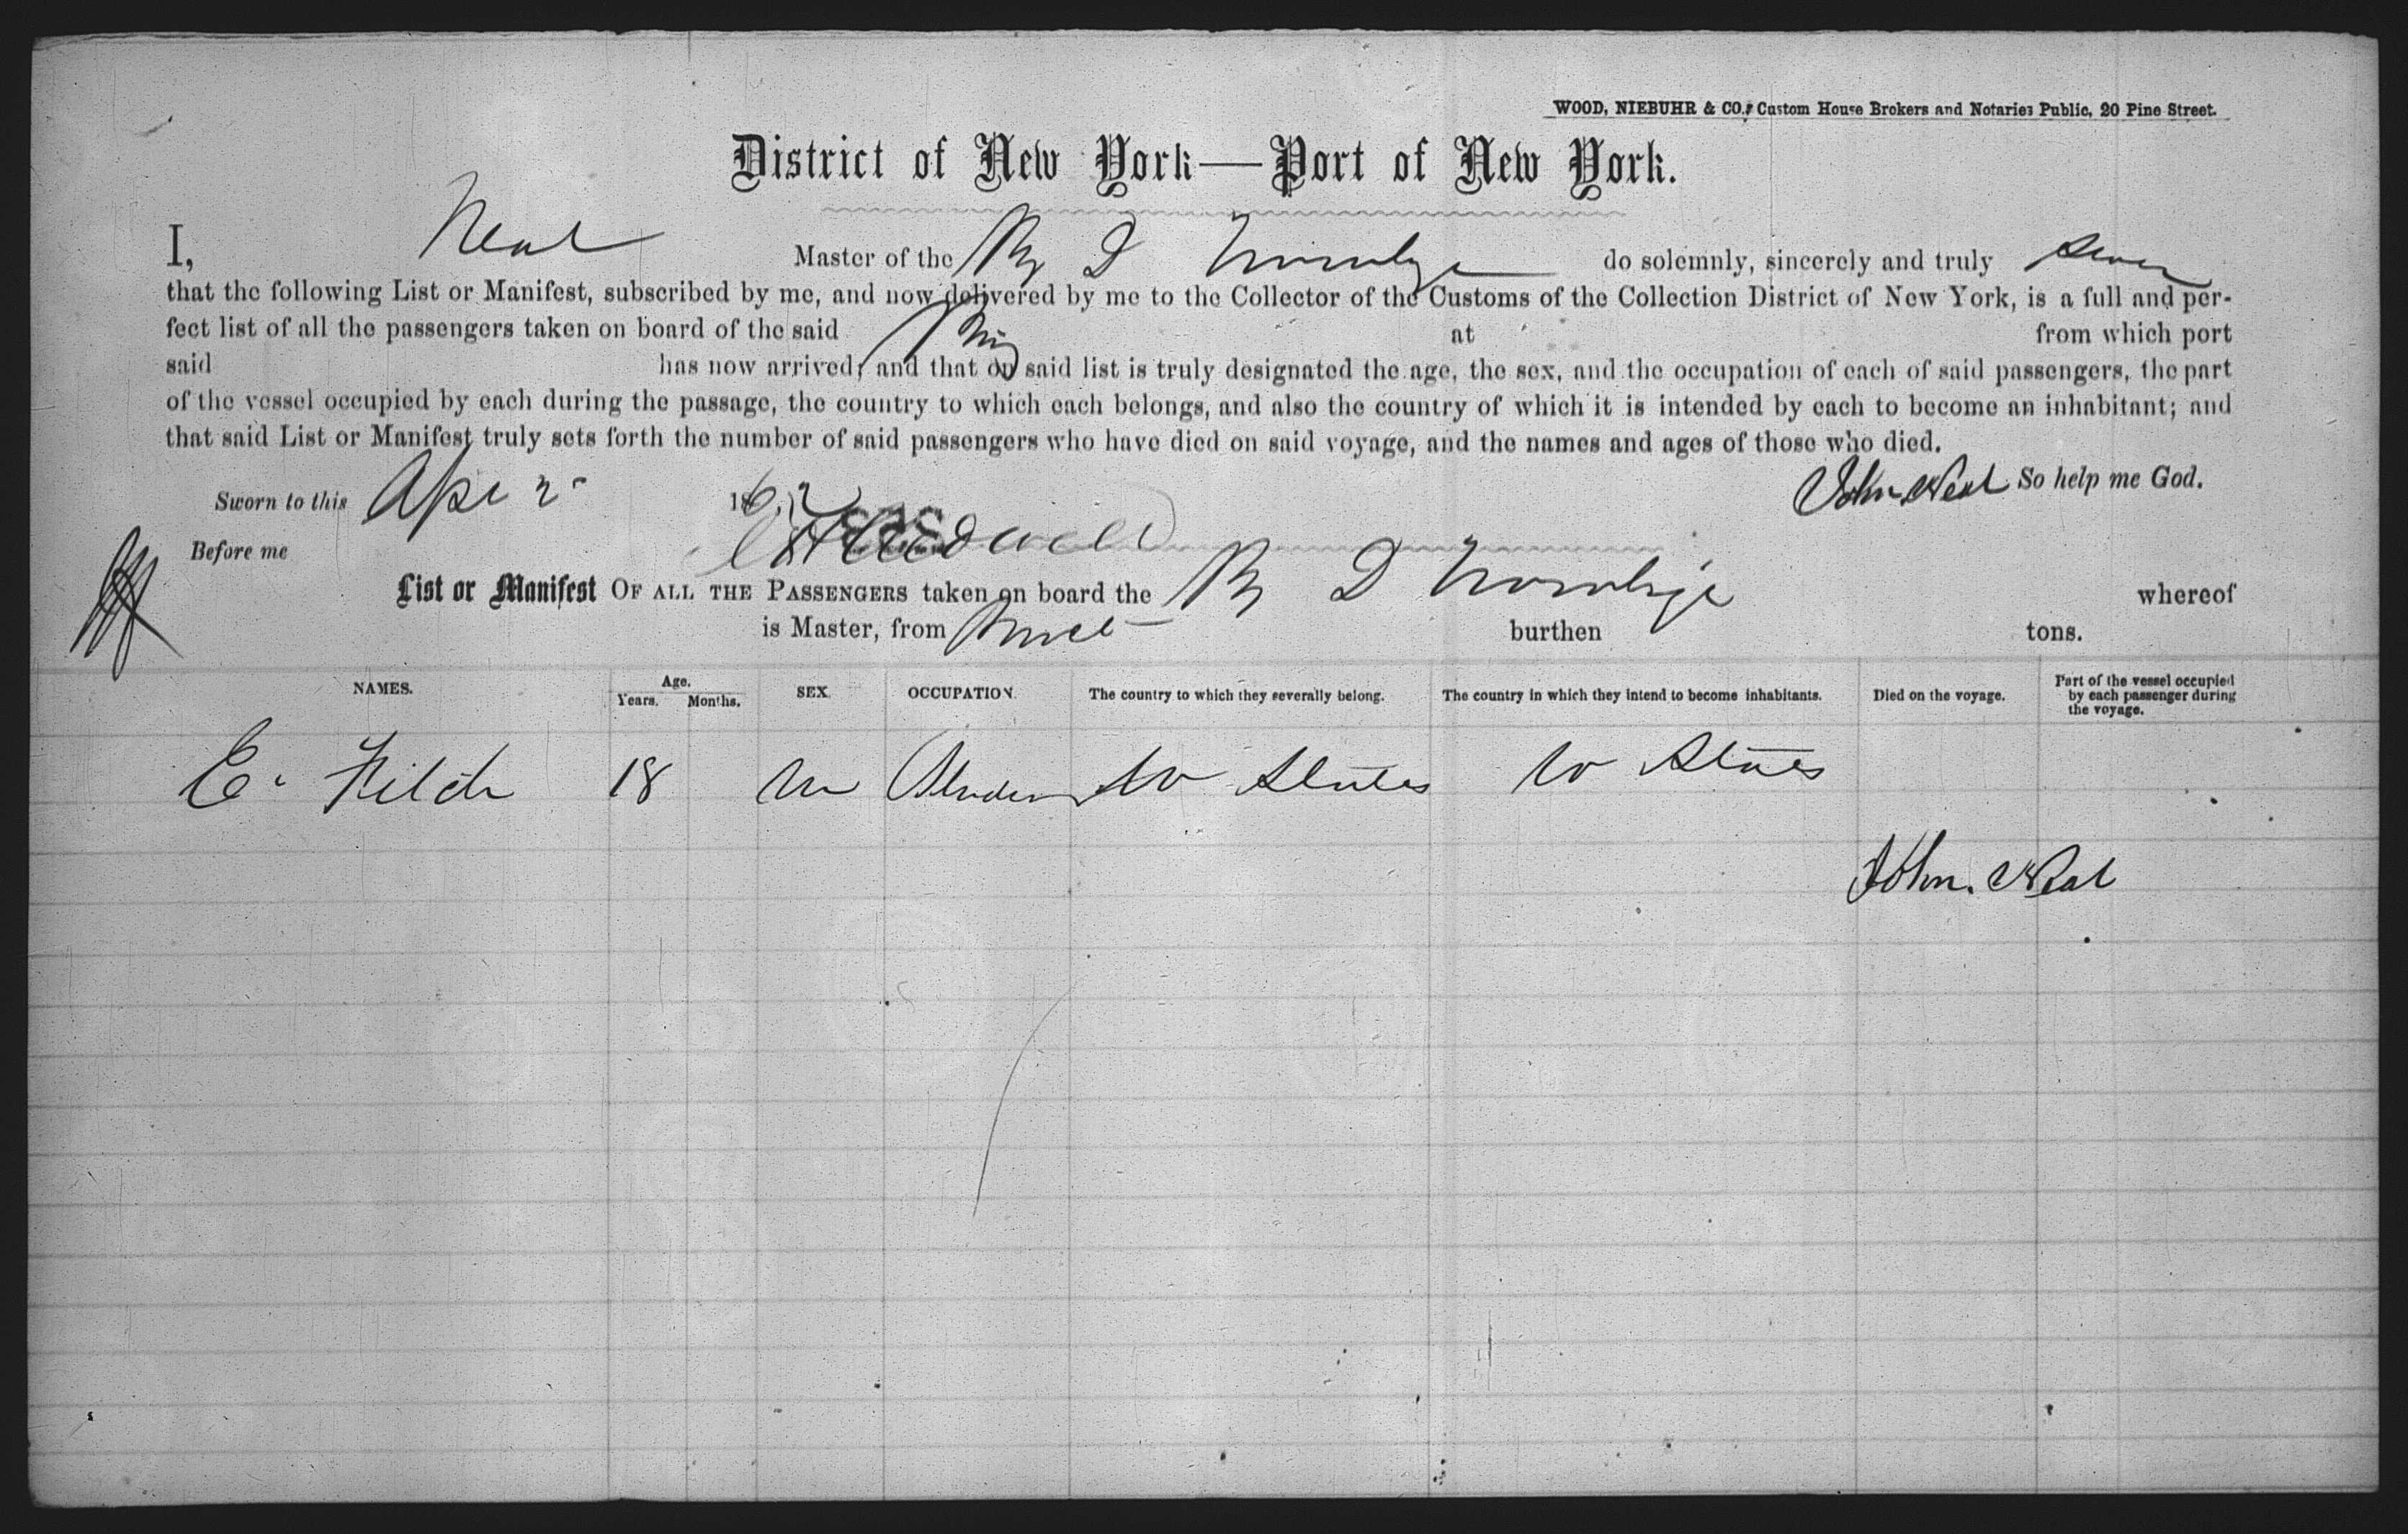 WOOD, NIEBUHR & CO., Custom House Brokers and Notaries Public, 20 Pine Street.
District of New York—Port of New York.
I, Neal Master of the D do solemnly, sincerely and truly swear
that the following List or Manifest, subscribed by me, and now delivered by me to the Collector of the Customs of the Collection District of New York, is a full and per-
fect list of all the passengers taken on board of the said Brig at from which port
said has now arrived; and that on said list is truly designated the age, the sex, and the occupation of each of said passengers, the part
of the vessel occupied by each during the passage, the country to which each belongs, and also the country of which it is intended by each to become an inhabitant; and
that said List or Manifest truly sets forth the number of said passengers who have died on said voyage, and the names and ages of those who died.
Sworn to this Apl 2 1862 John Neal So help me God.
Before me
List or Manifest OF ALL THE PASSENGERS taken on board the D whereof
is Master, from burthen tons.
NAMES. Age. Years. Months. SEX. OCCUPATION. The country to which they severally belong. The country in which they intend to become inhabitants. Died on the voyage. Part of the vessel occupied by each passenger during the voyage.
E. 18 m U States U States
John Neal